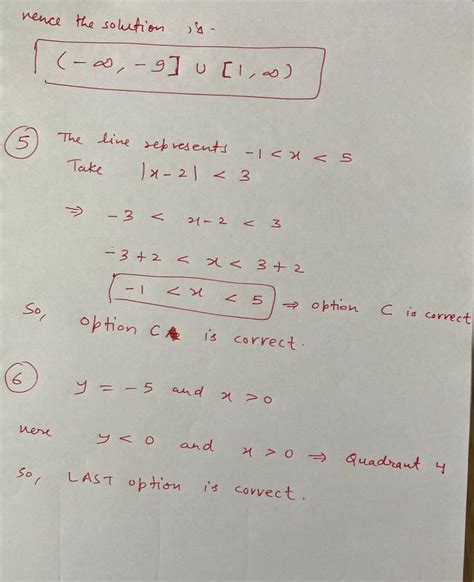 hence the solution is -
(-∞, -9] ∪ [1, ∞)
5 The line represents -1 < x < 5
Take |x-2| < 3
⇒ -3 < x-2 < 3
-3+2 < x < 3+2
-1 < x < 5 ⇒ option C is correct
So, option C is correct.
6 y = -5 and x > 0
here y < 0 and x > 0 ⇒ Quadrant 4
So, LAST option is correct.